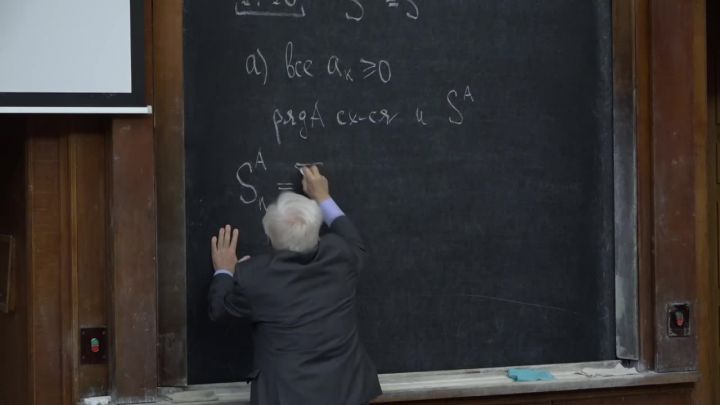 S = S
а) все aₖ ⩾ 0
ряд A сх-ся и Sᴬ
Sₙᴬ =